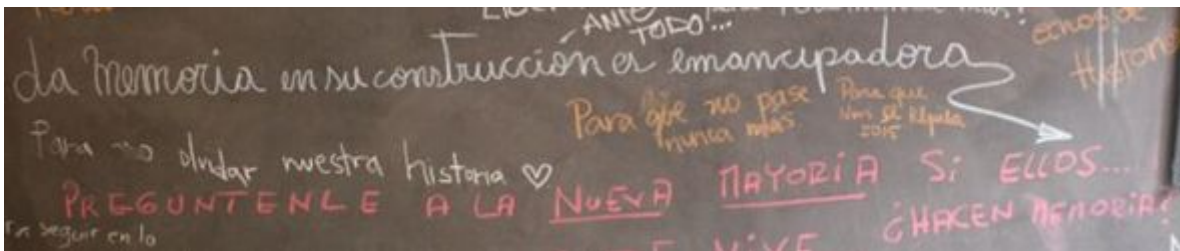 ANTE
TODO...
La Memoria en su construcción es emancipadora
Para que no pase
nunca más
Para que
Nos se
2015
Para no olvidar nuestra historia ♡
PREGUNTENLE A LA NUEVA MAYORÍA Si ELLOS....
¿HACEN MEMORIA?
seguir en lo
VIVE